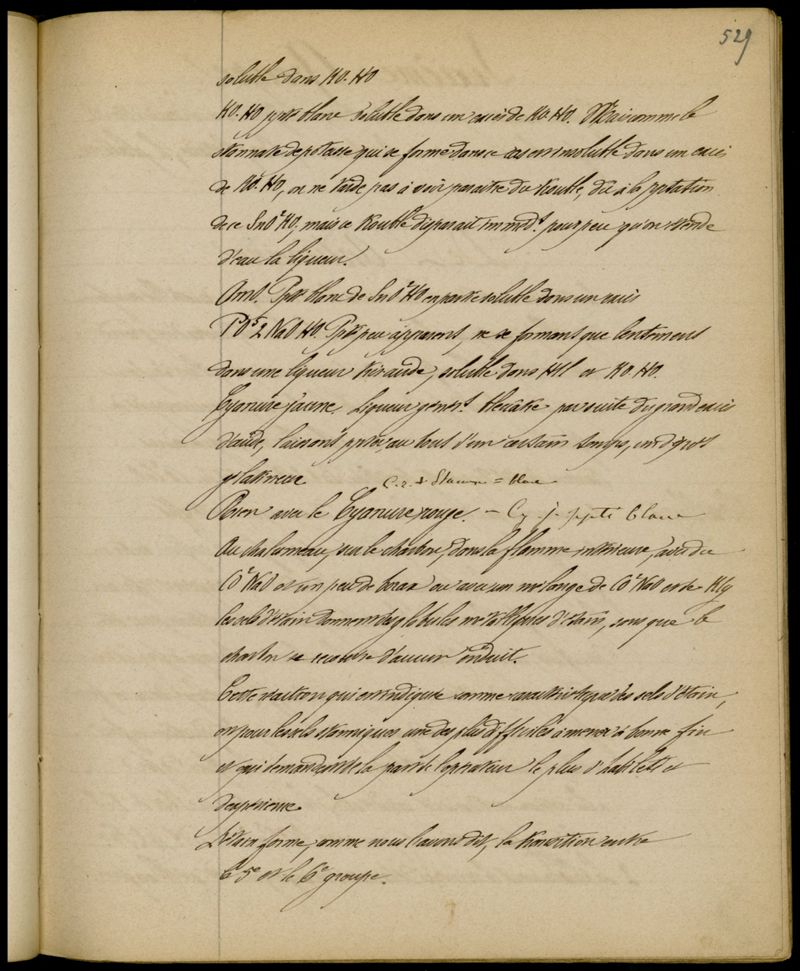 529
soluble dans KO. HO
KO. HO ppté blanc soluble dans un excès de KO. HO. Mais comme le
stannate de potasse qui se forme dans ce cas est insoluble dans un excès
de KO. HO, on ne tarde pas à voir paraître du trouble, dû à la pptation
de ce SnO² HO, mais ce trouble disparait immédt. pour peu qu'on étende
d'eau la liqueur.
Am. Ppté blanc de SnO² HO en partie soluble dans un excès
PO⁵ 2 NaO HO. Ppté peu apparent, ne se formant que lentement
dans une liqueur très acide, soluble dans HCl et KO. HO.
Cyanure jaune. Liqueur génért. verdâtre par suite du grand excès
d'acide, laissant ppter, au bout d'un certain temps, un dépôt
gélatineux
C. r. + Stanneux = blanc
Rien avec le Cyanure rouge. — Cy. j. ppté blanc
Au chalumeau, sur le charbon, dans la flamme intérieure, avec du
CO² NaO et un peu de borax ou avec un mélange de CO² NaO et de KCy
les sels d'étain donnent des globules métalliques d'étain, sans que le
charbon se recouvre d'aucun enduit.
Cette réaction qui est indiquée comme caractéristique des sels d'étain,
est pour les sels stanniques une des plus difficiles à mener à bonne fin
et qui demandent de la part de l'opérateur le plus d'habileté et
d'expérience
L'étain forme, comme nous l'avons dit, la transition entre
le 5e et le 6e groupe.